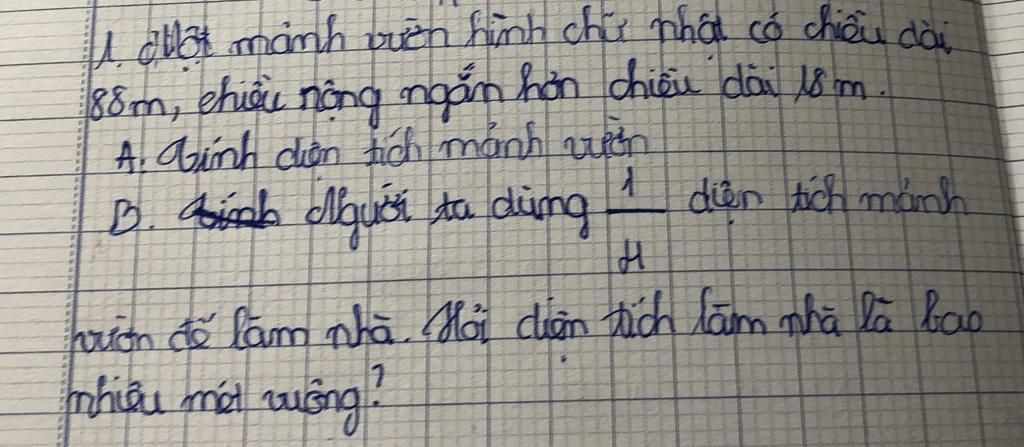 1. Một mảnh vườn hình chữ nhật có chiều dài
88m, chiều rộng ngắn hơn chiều dài 18m.
A. Tính diện tích mảnh vườn
B. Người ta dùng 1/4 diện tích mảnh
vườn để làm nhà. Hỏi diện tích làm nhà là bao
nhiêu mét vuông?